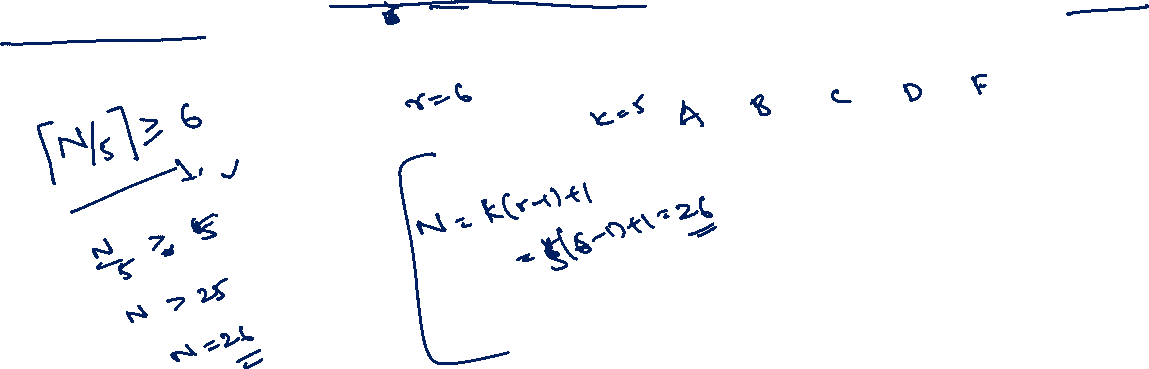 ⌈N/5⌉ ≥ 6
N/5 > 5
N > 25
N = 26
r = 6
k = 5 A B C D F
N = k(r-1)+1
= 5(6-1)+1 = 26